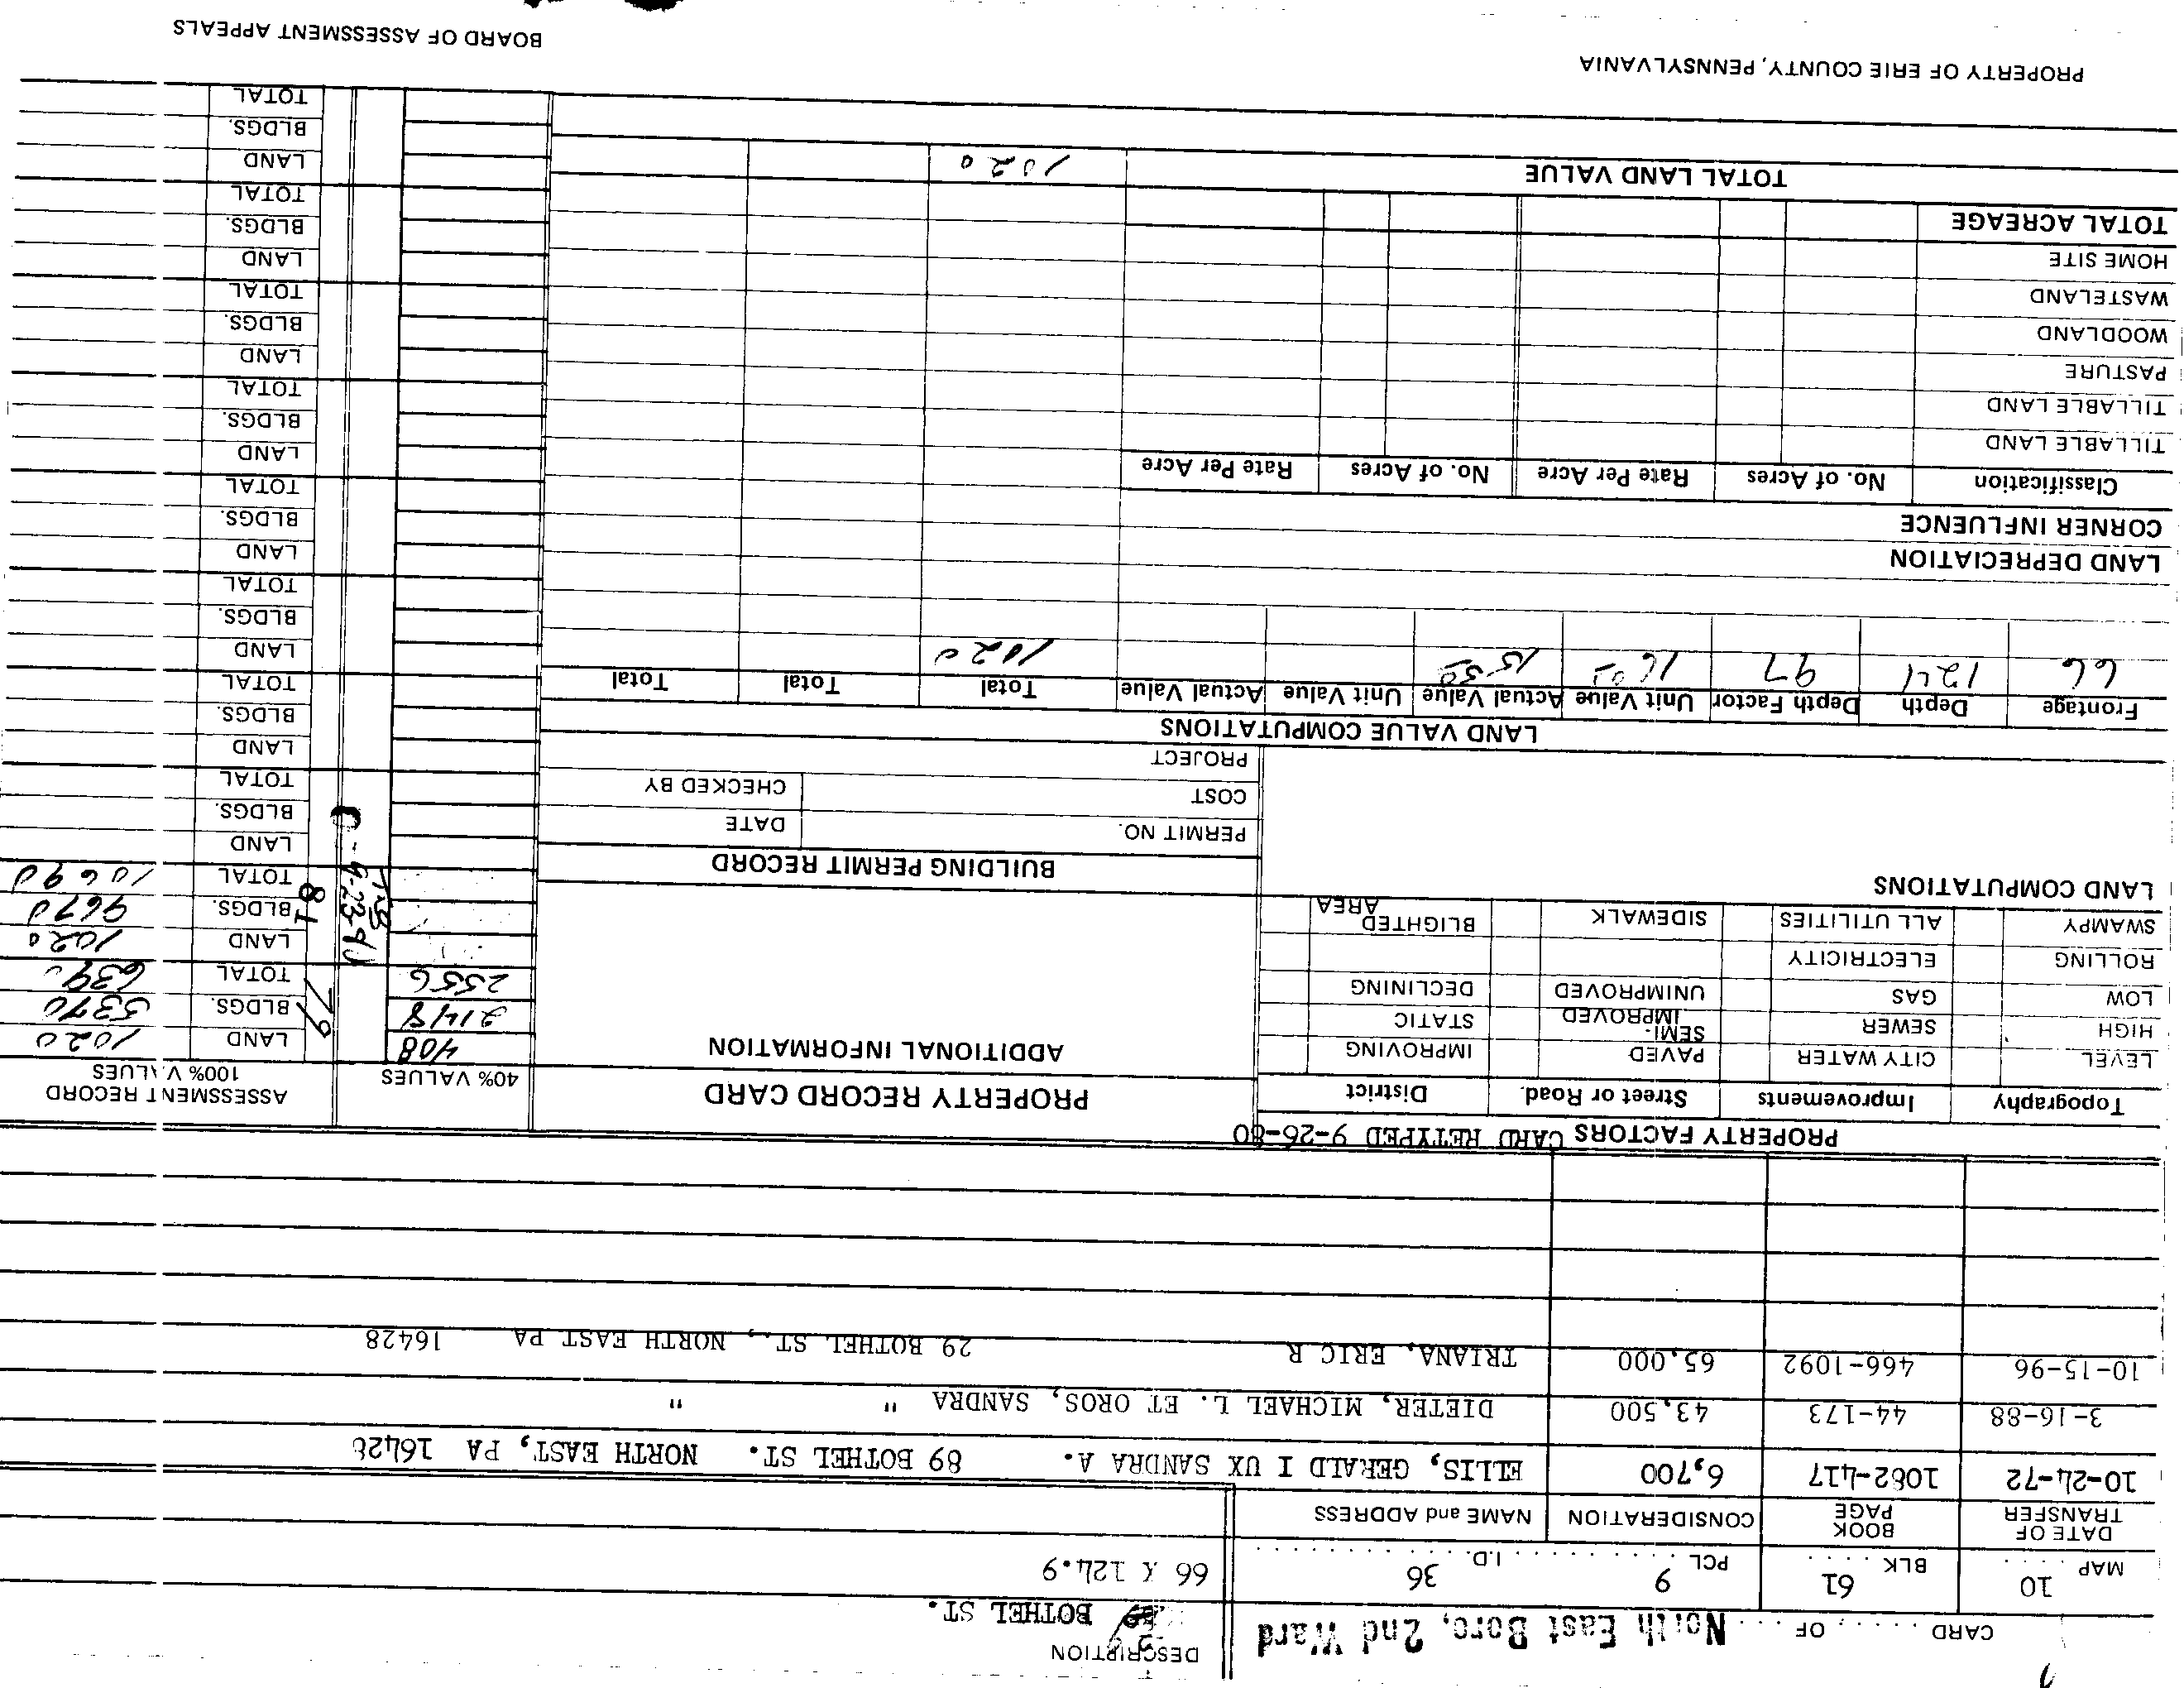 CARD . . . . . OF . . . . North East Boro, 2nd Ward
DESCRIPTION
BOTHEL ST.
MAP . . . . 10 BLK . . . . 61 PCL . . . . 9 I.D. . . . . 36
66 X 124.9
DATE OF TRANSFER BOOK PAGE CONSIDERATION NAME and ADDRESS
10-24-72 1082-417 6,700 ELLIS, GERALD I UX SANDRA A. 89 BOTHEL ST. NORTH EAST, PA 16428
3-16-88 44-173 43,500 DIETER, MICHAEL L. ET OROS, SANDRA " "
10-15-96 466-1092 65,000 TRIANA, ERIC R 29 BOTHEL ST., NORTH EAST PA 16428
PROPERTY FACTORS CARD RETYPED 9-26-80
Topography Improvements Street or Road. District
LEVEL CITY WATER PAVED IMPROVING
HIGH SEWER SEMI-IMPROVED STATIC
LOW GAS UNIMPROVED DECLINING
ROLLING ELECTRICITY
SWAMPY ALL UTILITIES SIDEWALK BLIGHTED AREA
LAND COMPUTATIONS
PROPERTY RECORD CARD
ADDITIONAL INFORMATION
BUILDING PERMIT RECORD
PERMIT NO. DATE
COST CHECKED BY
PROJECT
40% VALUES
408
2148
2556
ASSESSMENT RECORD
100% VALUES
79
LAND 1020
BLDGS. 5370
TOTAL 6390
81
LAND 1020
BLDGS. 9670
TOTAL 10690
4-23-90
LAND
BLDGS.
TOTAL
LAND
BLDGS.
TOTAL
LAND
BLDGS.
TOTAL
LAND
BLDGS.
TOTAL
LAND
BLDGS.
TOTAL
LAND
BLDGS.
TOTAL
LAND
BLDGS.
TOTAL
LAND
BLDGS.
TOTAL
LAND VALUE COMPUTATIONS
Frontage Depth Depth Factor Unit Value Actual Value Unit Value Actual Value Total Total Total
66 124 97 16.00 15.50 1020
LAND DEPRECIATION
CORNER INFLUENCE
Classification No. of Acres Rate Per Acre No. of Acres Rate Per Acre
TILLABLE LAND
TILLABLE LAND
PASTURE
WOODLAND
WASTELAND
HOME SITE
TOTAL ACREAGE
TOTAL LAND VALUE 1020
PROPERTY OF ERIE COUNTY, PENNSYLVANIA
BOARD OF ASSESSMENT APPEALS